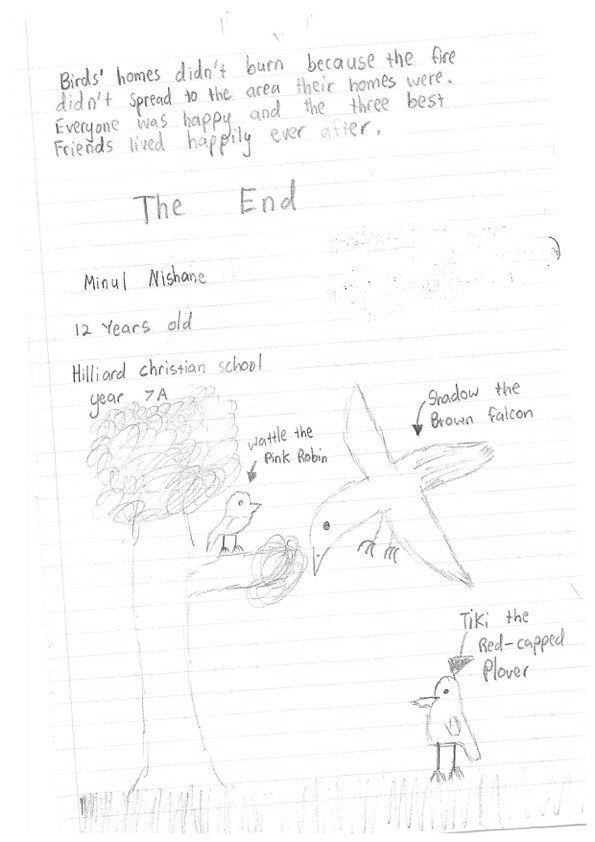 Birds' homes didn't burn because the fire
didn't spread to the area their homes were.
Everyone was happy and the three best
Friends lived happily ever after.
The End
Minul Nishane
12 Years old
Hilliard christian school
year 7A
wattle the
Pink Robin
Shadow the
Brown falcon
Tiki the
Red-capped
Plover